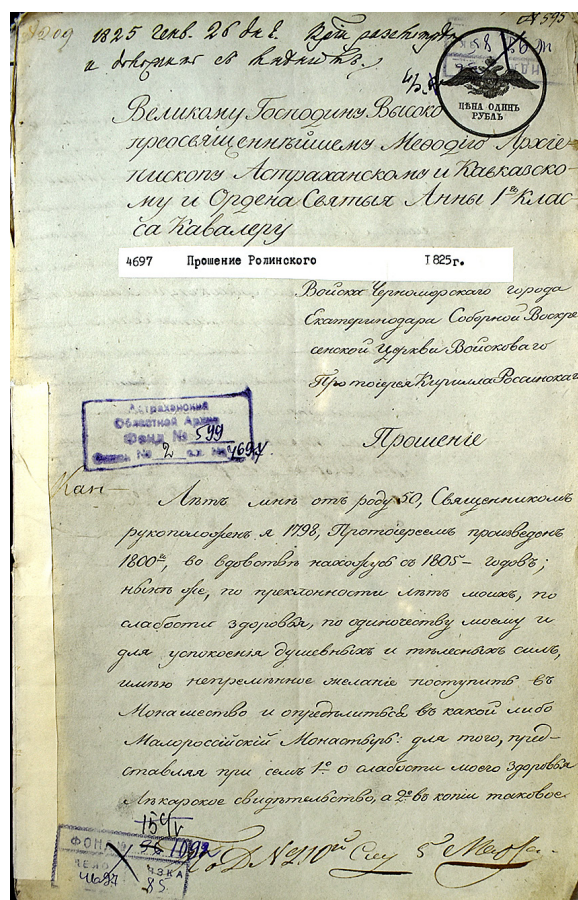 № 595
1825 генв. 26 дня.
ЦѢНА ОДИНЪ
РУБЛЬ
Великому Господину Высоко
преосвященнѣйшему Меѳодію Архіе-
пископу Астраханскому и Кавказско-
му и Ордена Святыя Анны 1го Клас-
са Кавалеру
4697 Прошение Ролинского 1825г.
Войска Черноморскаго города
Екатеринодара Соборной Воскре
сенской Церкви Войсковаго
Протоіерея Кирилла Россинскаго
Астраханский
Областной Архив
Фонд № 599
Опись № 2 ед. хр. № 4697
Прошеніе
Лѣтъ мнѣ отъ роду 50, Священникомъ
рукоположенъ я 1798, Протоіереемъ произведенъ
1800го, во вдовствѣ нахожусь съ 1805 - годовъ;
нынѣ же, по преклонности лѣтъ моихъ, по
слабости здоровья, по одиночеству моему и
для успокоенія душевныхъ и тѣлесныхъ силъ,
имѣю непремѣнное желаніе поступить въ
Монашество и опредѣлиться въ какой либо
Малороссійскій Монастырь: для того, пред-
ставляя при семъ 1е о слабости моего здоровья
Лѣкарское свидѣтельство, а 2е въ копіи таковое
ФОНД №
ДЕЛО
4697
ВЯЗКА
85
№ 210й